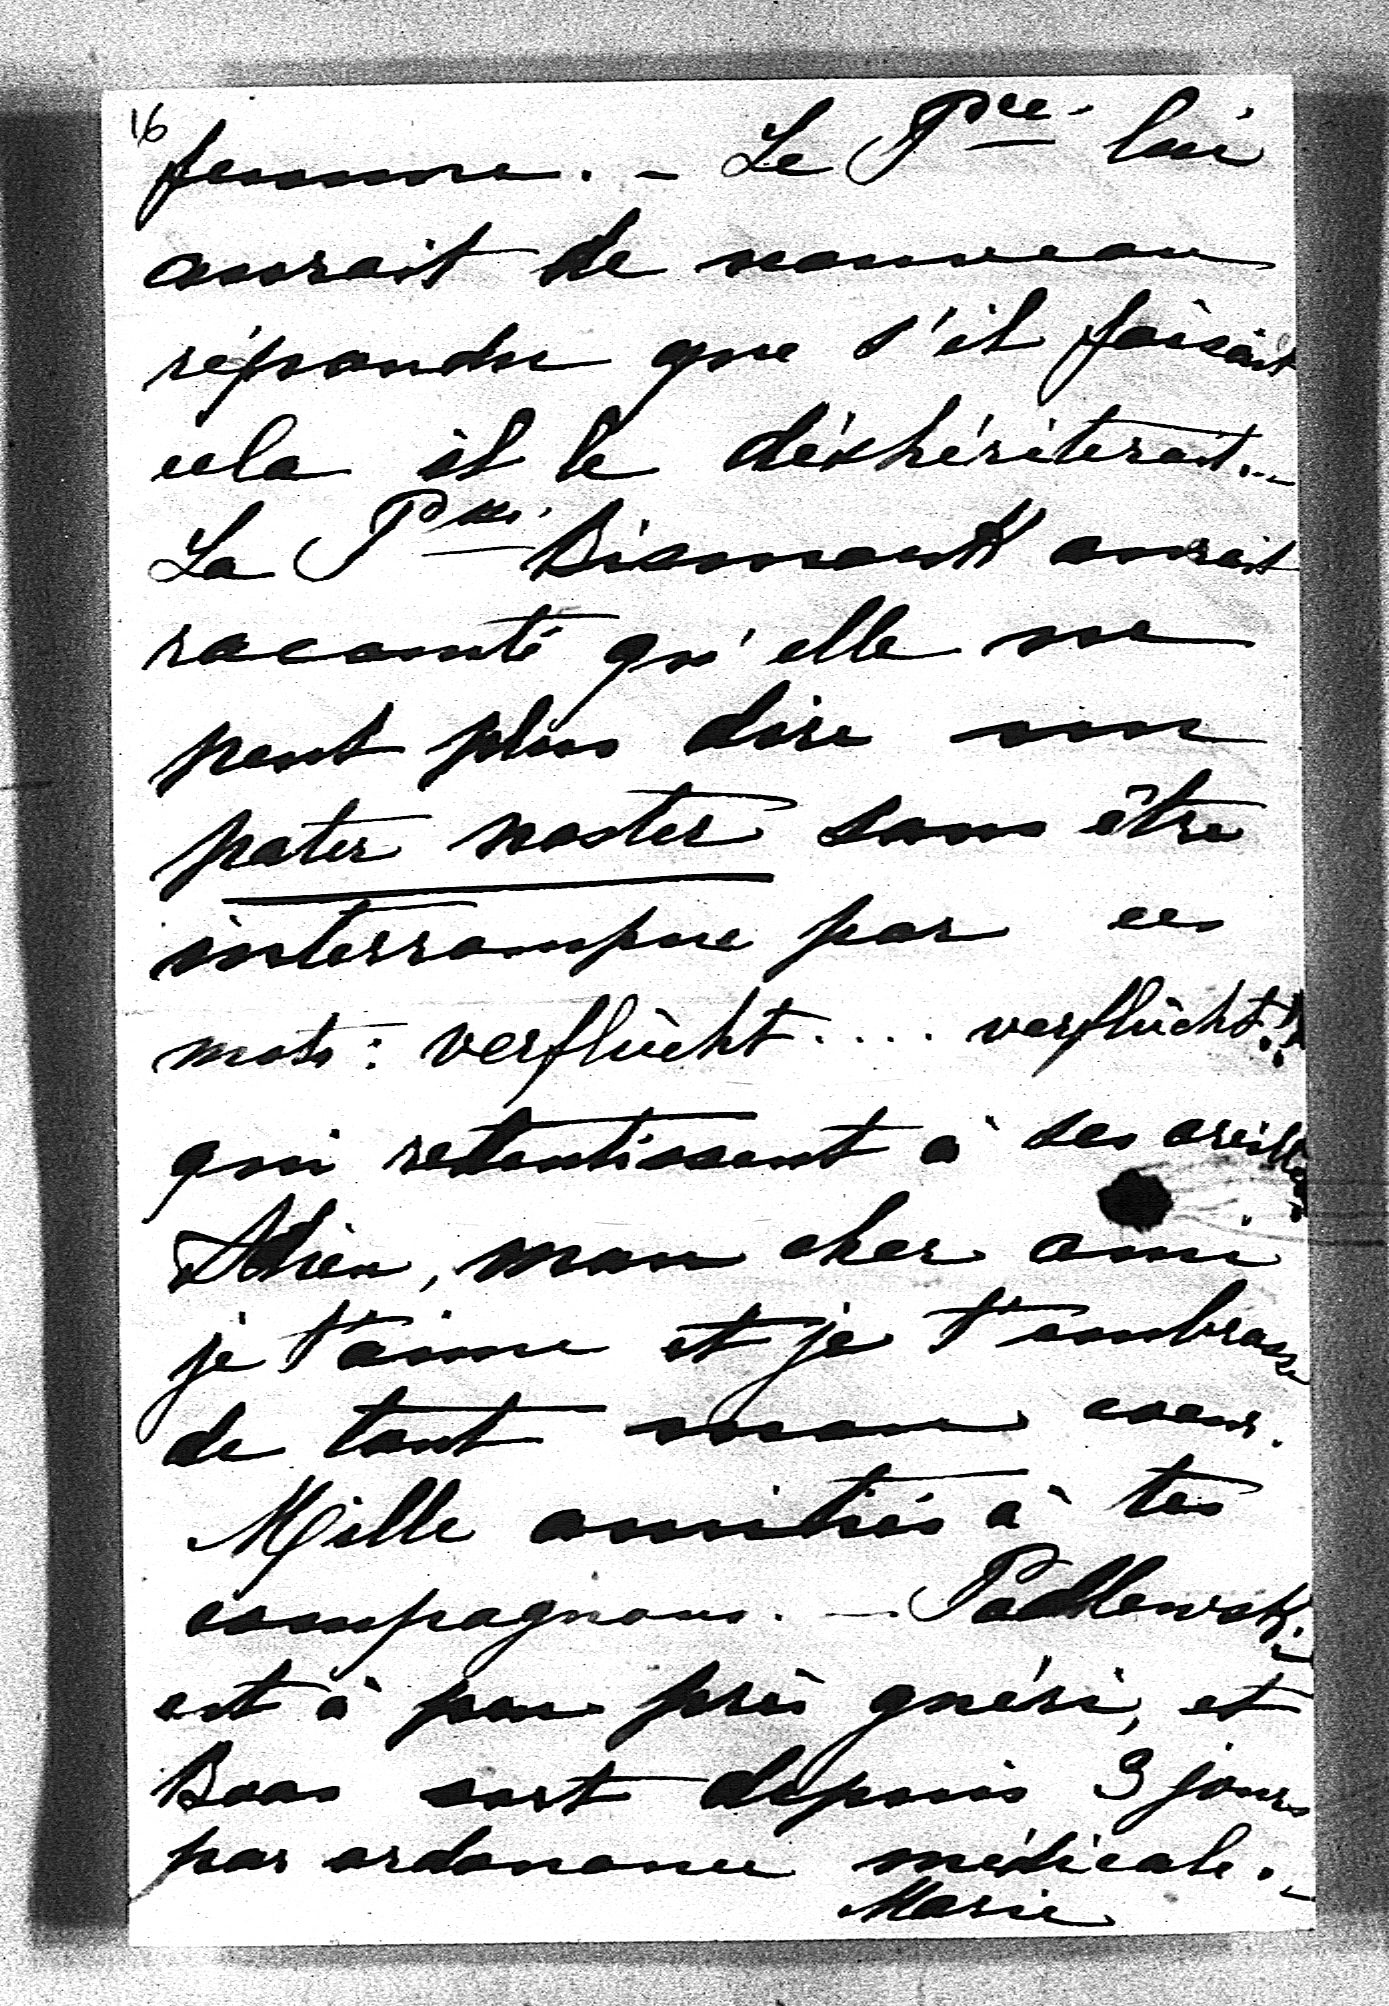 16
femme. - Le Pce lui
aurait de nouveau
répondu que s'il faisait
cela il le déshériterait...
La Psse Bismark aurait
raconté qu'elle ne
peut plus dire un
pater noster sans être
interrompue par ces
mots: verflùcht.... verflùcht!!
qui retentissent à ses oreilles.
Adieu, mon cher ami
je t'aime et je t'embrasse
de tout mon coeur.
Mille amitiés à tes
compagnons. - Podlewski
est à peu près guéri, et
Boas sort depuis 3 jours
par ordonance médicale. -
Marie